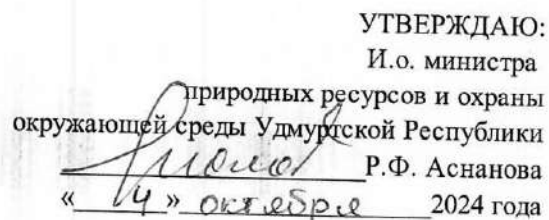 УТВЕРЖДАЮ:
И.о. министра
природных ресурсов и охраны
окружающей среды Удмуртской Республики
Р.Ф. Аснанова
« 14 » октября 2024 года